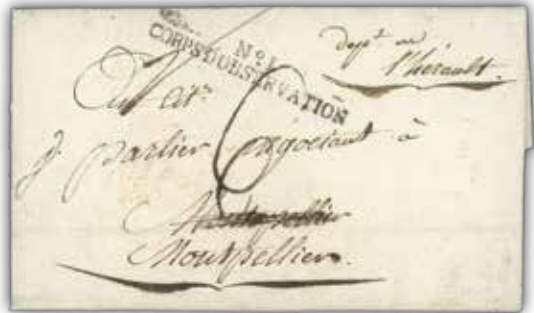 N.º 1
CORPS D'OBSERVATION
depᵗ de
l'hérault.
Au citⁿ
J. parlier négociant à
6
Montpellier
Montpellier.